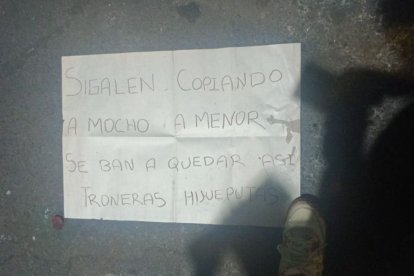 SIGALEN COPIANDO
A MOCHO A MENOR
SE BAN A QUEDAR ASI
TRONERAS HIJUEPUTAS